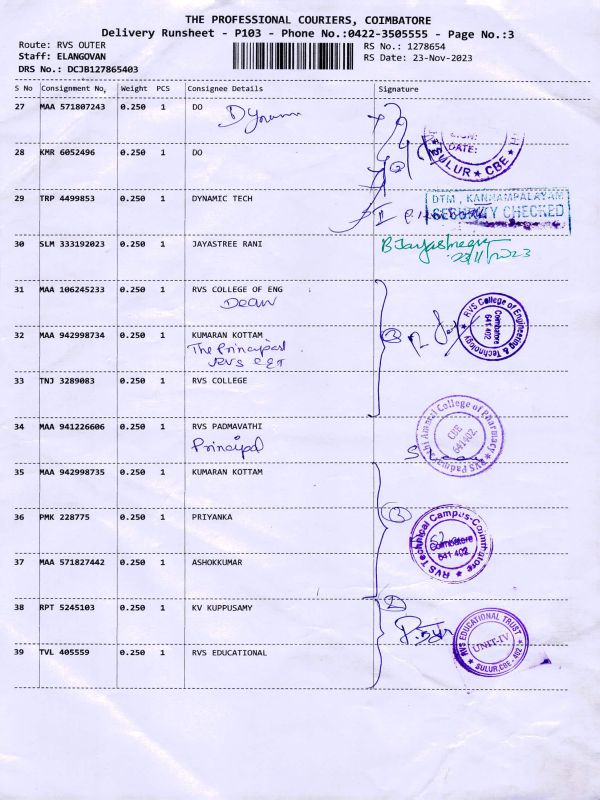 THE PROFESSIONAL COURIERS, COIMBATORE
Delivery Runsheet - P103 - Phone No.:0422-3505555 - Page No.:3
Route: RVS OUTER
RS No.: 1278654
Staff: ELANGOVAN
RS Date: 23-Nov-2023
DRS No.: DCJB127865403
S No Consignment No, Weight PCS Consignee Details Signature
27 MAA 571807243 0.250 1 DO
DATE:
SULUR ★ CBE ★
28 KMR 6052496 0.250 1 DO
29 TRP 4499853 0.250 1 DYNAMIC TECH
DTM, KANNAMPALAYAM
SECURITY CHECKED
30 SLM 333192023 0.250 1 JAYASTREE RANI
23/11/2023
31 MAA 106245233 0.250 1 RVS COLLEGE OF ENG
Dean
RVS College of Engineering & Technology ★
Coimbatore
641 402
32 MAA 942998734 0.250 1 KUMARAN KOTTAM
The Principal
RVS CET
33 TNJ 3289083 0.250 1 RVS COLLEGE
34 MAA 941226606 0.250 1 RVS PADMAVATHI
Principal
RVS Padmavathi Ammal College of Pharmacy ★
CBE
641402.
35 MAA 942998735 0.250 1 KUMARAN KOTTAM
36 PMK 228775 0.250 1 PRIYANKA
RVS Technical Campus-Coimbatore ★
Coimbatore
641 402
37 MAA 571827442 0.250 1 ASHOKKUMAR
38 RPT 5245103 0.250 1 KV KUPPUSAMY
39 TVL 405559 0.250 1 RVS EDUCATIONAL
RVS EDUCATIONAL TRUST
UNIT-IV
★ SULUR,CBE - 402 ★